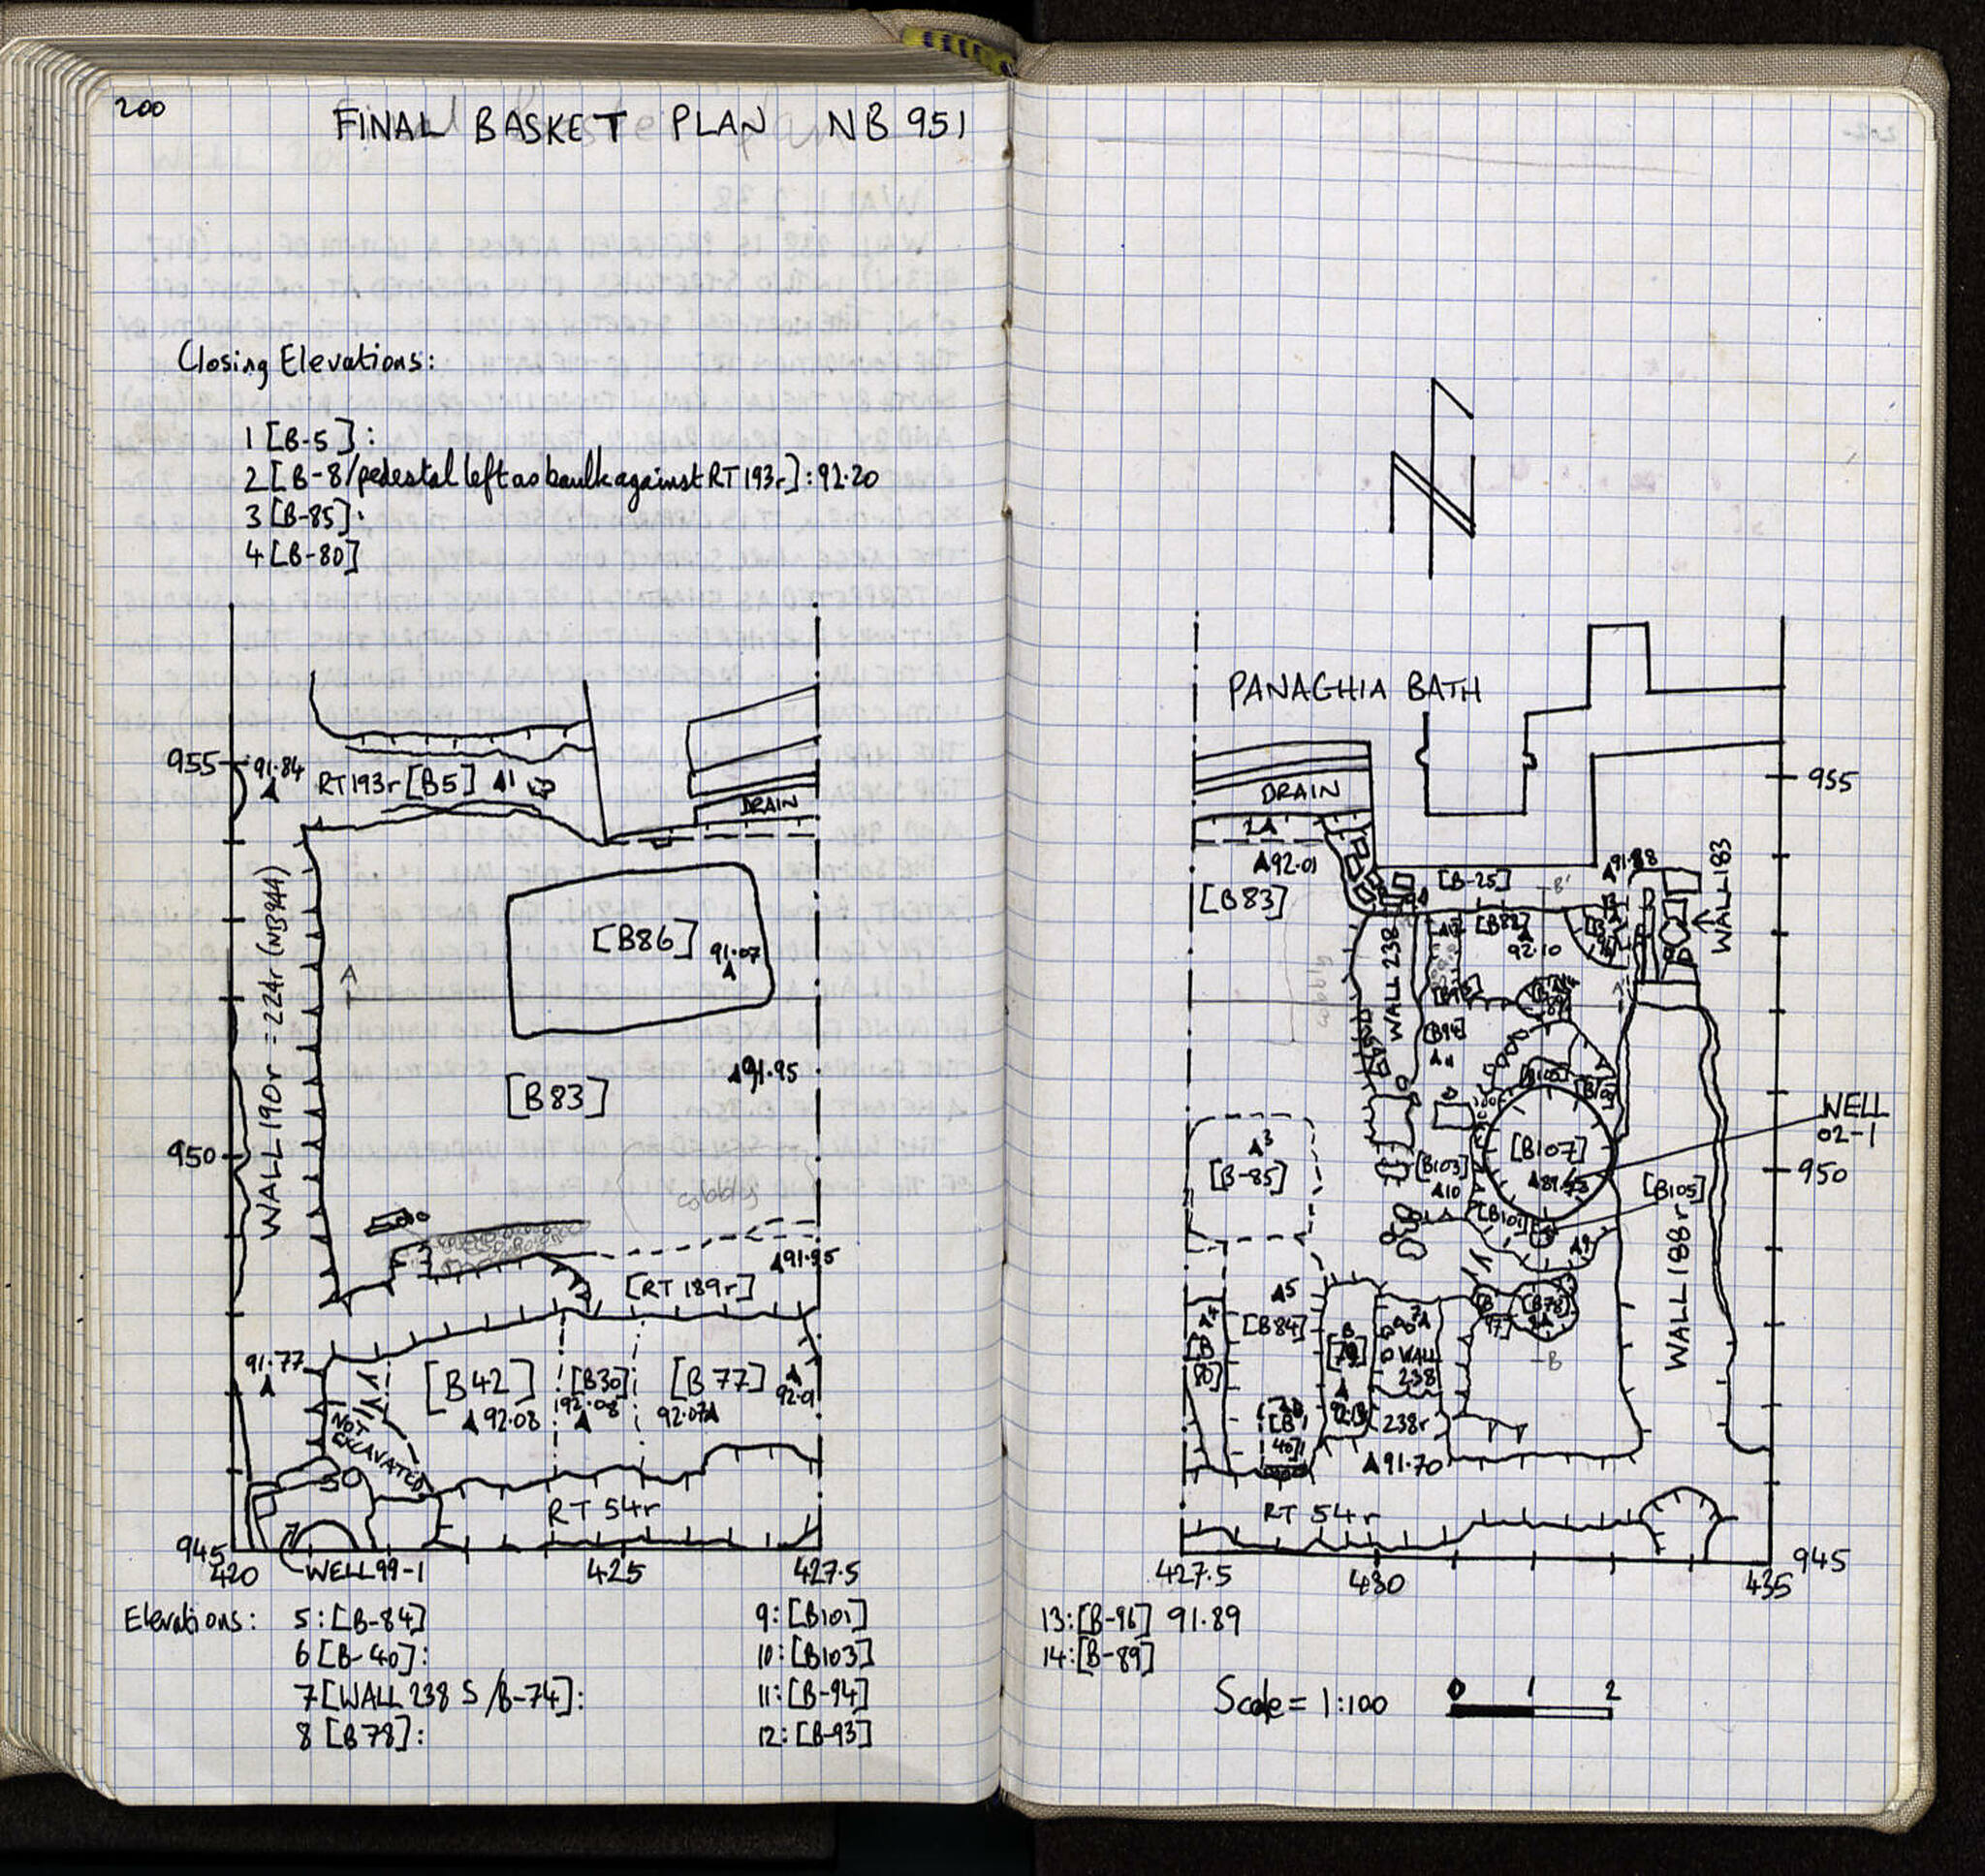 200
FINAL BASKET PLAN NB 951
Closing Elevations:
1 [B-5]:
2 [B-8/pedestal left as baulk against RT 193r]: 92.20
3 [B-85]:
4 [B-80]
955
91.84
RT193r [B5] 1
DRAIN
WALL 190r = 224r (NB944)
[B86]
91.07
A
91.95
[B83]
950
cobbly
91.95
[RT 189r]
91.77
[B42]
92.08
[B30]
92.08
[B77]
92.07
92.01
NOT EXCAVATED
RT 54r
945
420
WELL 99-1
425
427.5
Elevations:
5: [B-84]
6 [B-40]:
7 [WALL 238 S /B-74]:
8 [B78]:
9: [B101]
10: [B103]
11: [B-94]
12: [B-93]
PANAGHIA BATH
DRAIN
955
2
92.01
[B83]
[B-25]
B'
91.88
WALL 183
WALL 238
[B88]
92.10
cobbly
[B94]
11
[B107]
WELL
02-1
950
3
[B-85]
[B103]
10
[B101]
9
[B105]
WALL 188r
5
[B84]
[B80]
[B78]
B
WALL
238
238r
[B40]
91.70
RT 54r
427.5
430
435
945
13: [B-96] 91.89
14: [B-89]
Scale = 1:100
0 1 2